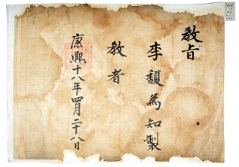 敎旨
李馥為知製
敎者
康熙十八年四月二十八日